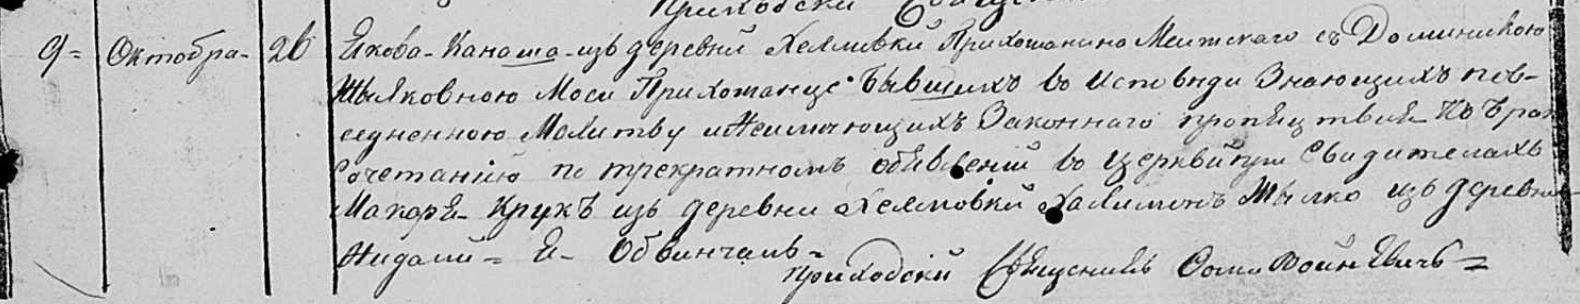 Приходски
9= Октобра- 26 Якова-Канаша-изъ деревни Хелмивки Прихожанина Мытскаго съ Доминикою
Мылковною Моси Прихожанце Бывшихъ во исповѣди Знающихъ повъ-
седненною Молитву и Неимеющихъ Законнаго препяцтвия Къ Брако
Сочетанію по трекратномъ обявленій во Церквй при Свидителахъ
Макаръ Крукъ изъ деревни Хелмовки Халимонъ Мылко изъ деревни
Я Обвинчалъ=
Приходски Священикъ Фома Войневичъ=